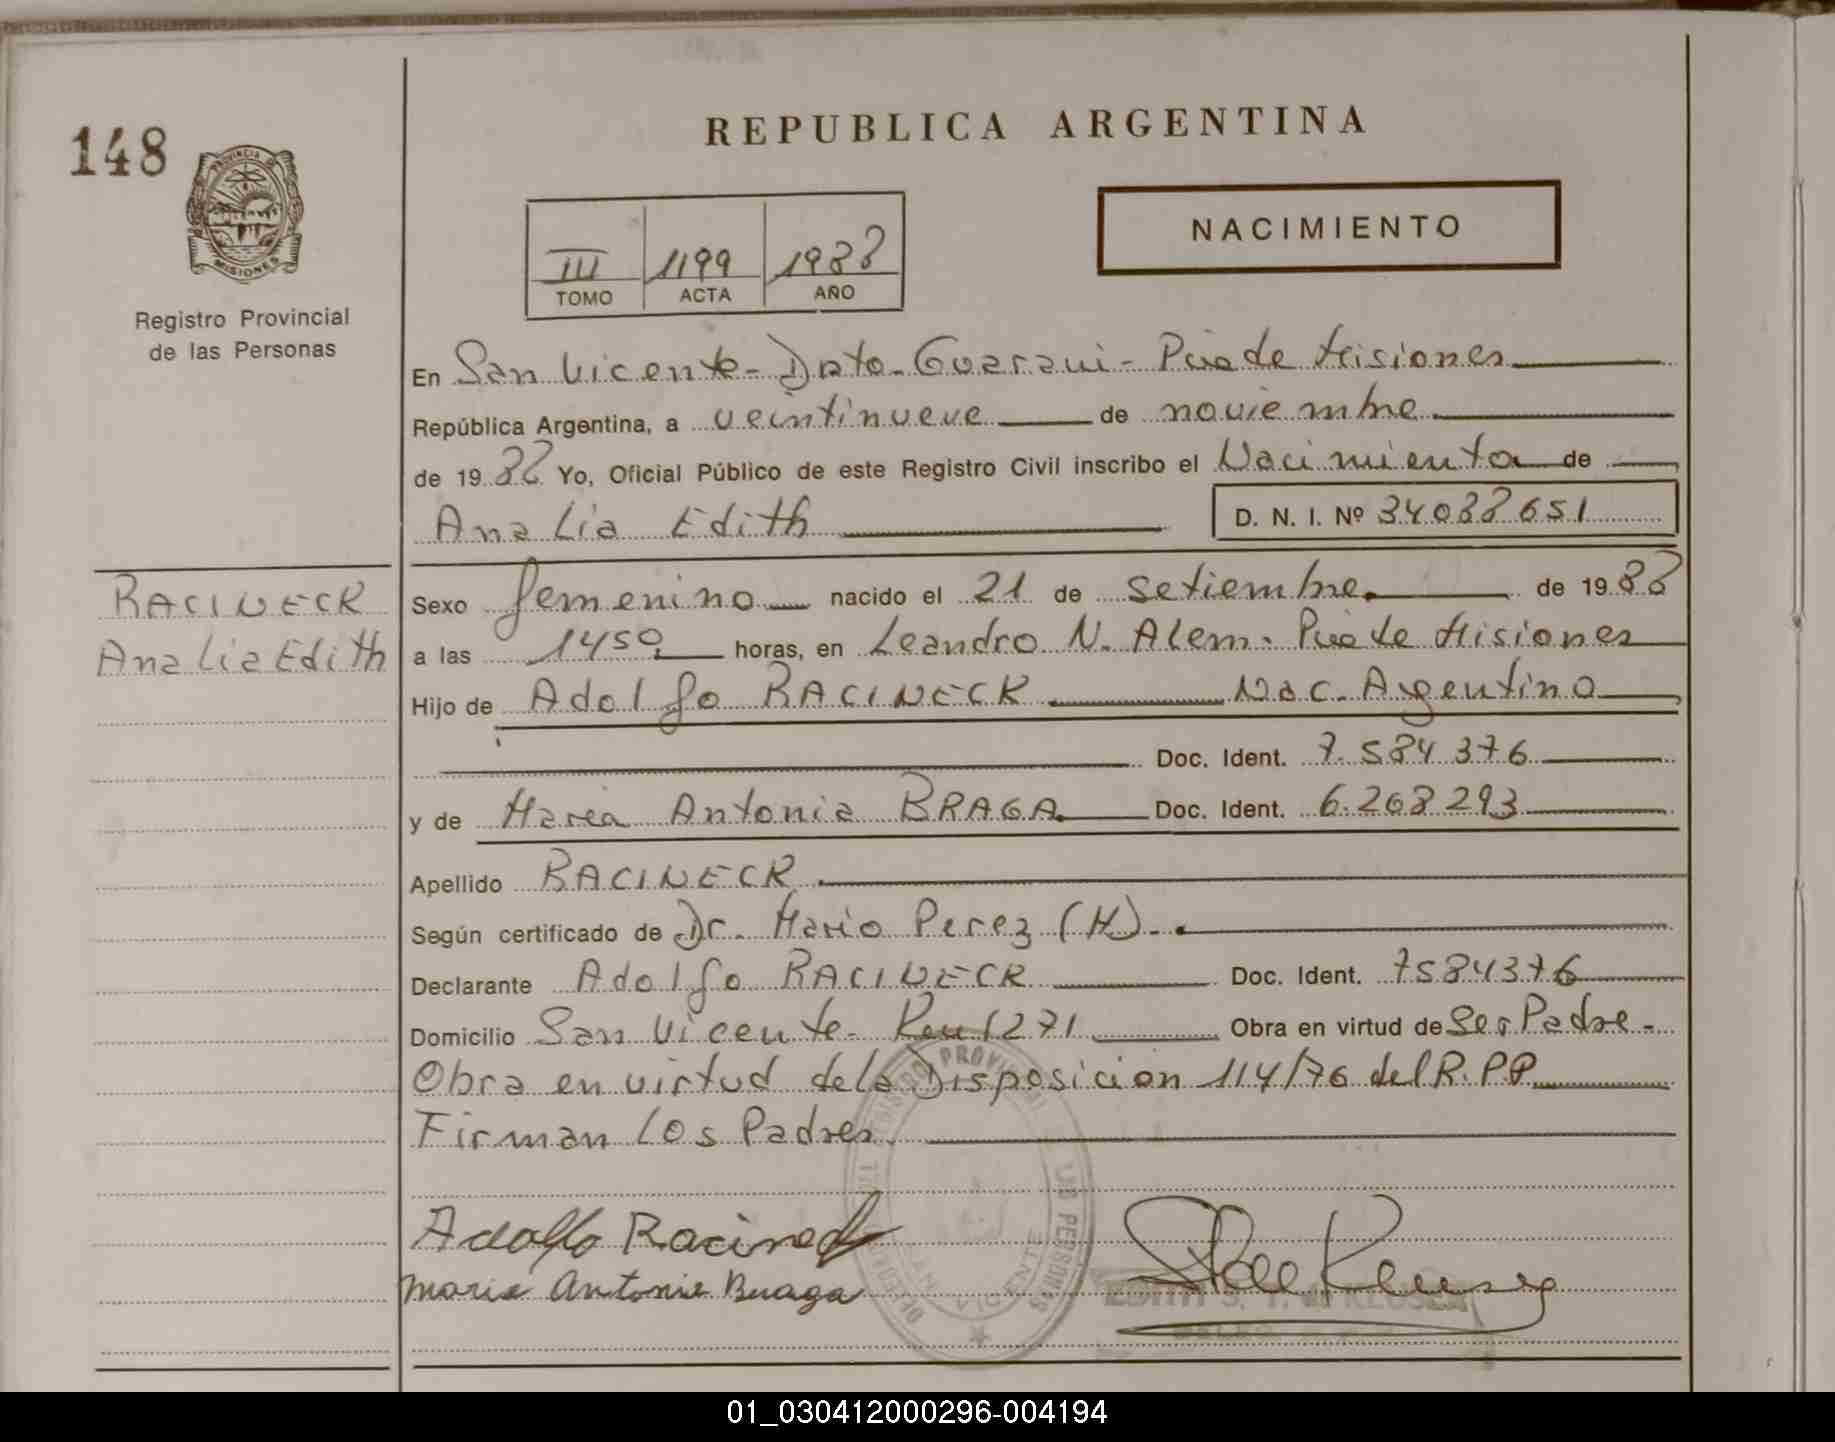 REPUBLICA ARGENTINA
148
PROVINCIA DE
MISIONES
Registro Provincial
de las Personas
NACIMIENTO
III 1199 1988
TOMO ACTA AÑO
En San Vicente - Dpto. Guarani - Pcia de Misiones
República Argentina, a veintinueve de noviembre
de 1988 Yo, Oficial Público de este Registro Civil inscribo el Nacimiento de
Analia Edith D. N. I. Nº 34088651
RACINECK
Analia Edith
Sexo femenino nacido el 21 de setiembre de 1988
a las 1450 horas, en Leandro N. Alem - Pcia de Misiones
Hijo de Adolfo RACINECK Nac. Argentino
Doc. Ident. 7.584376
y de Maria Antonia BRAGA Doc. Ident. 6.268293
Apellido RACINECK
Según certificado de Dr. Mario Perez (H).
Declarante Adolfo RACINECK Doc. Ident. 7584376
Domicilio San Vicente - Km 1271 Obra en virtud de Ser Padre -
Obra en virtud de la Disposicion 114/76 del R.P.P
Firman los Padres.
Adolfo Racineck
Maria Antonia Braga
SAN VICENTE
01_030412000296-004194